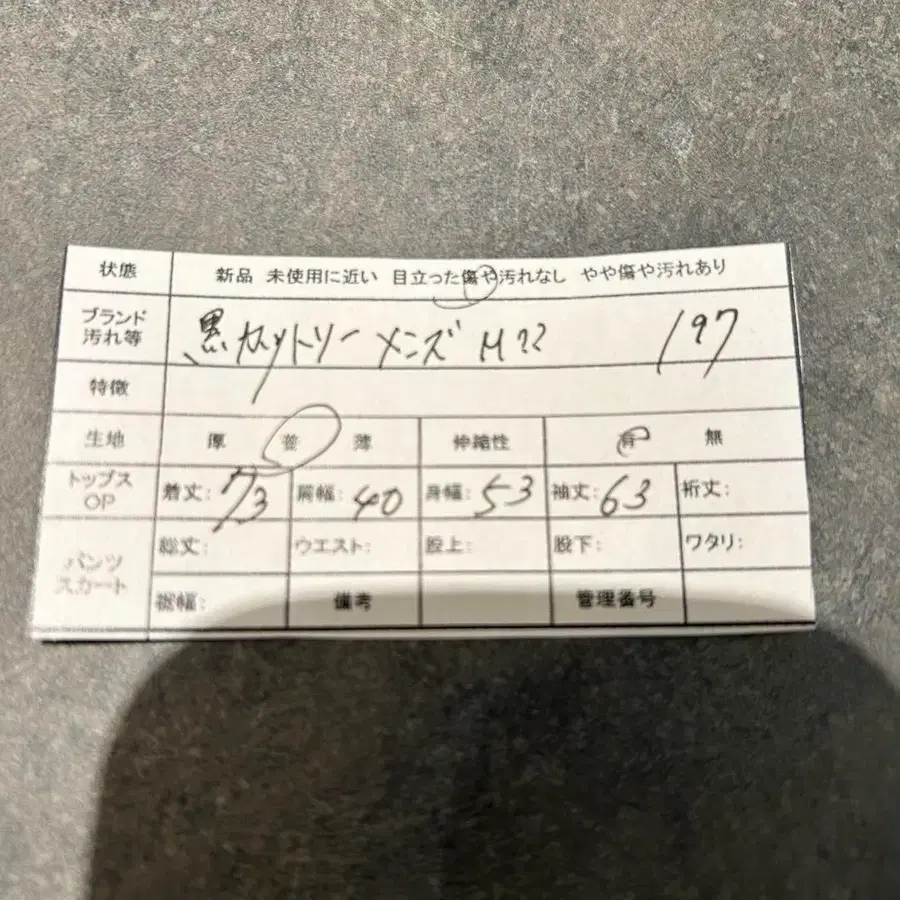 状態 新品 未使用に近い 目立った傷や汚れなし やや傷や汚れあり
ブランド 汚れ等 黒カットソー メンズ M?? 197
特徴
生地 厚 並 薄 伸縮性 有 無
トップス OP 着丈: 73 肩幅: 40 身幅: 53 袖丈: 63 裄丈:
パンツ スカート 総丈: ウエスト: 股上: 股下: ワタリ:
裾幅: 備考 管理番号